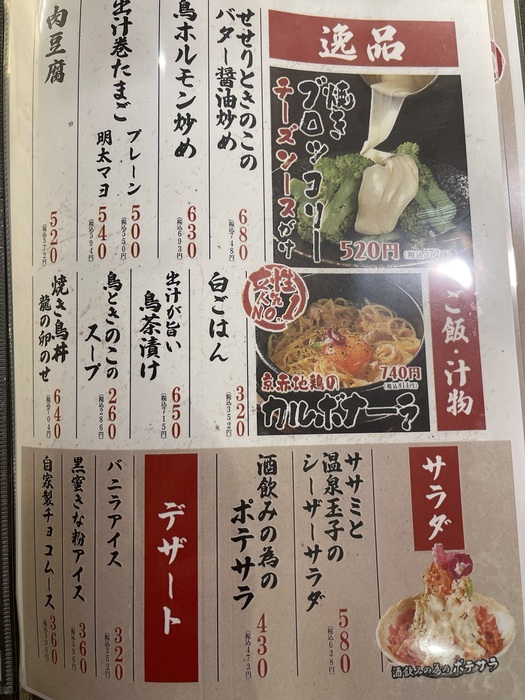 逸品
焼き
ブロッコリー
チーズソースがけ
520円
(税込572円)
せせりときのこの
バター醤油炒め
680
(税込748円)
鳥ホルモン炒め
630
(税込693円)
出汁巻たまご
プレーン
500
(税込550円)
明太マヨ
540
(税込594円)
肉豆腐
520
(税込572円)
ご飯・汁物
女性人気
NO.1
京赤地鶏の
カルボナーラ
740円
(税込814円)
白ごはん
320
(税込352円)
出汁が旨い
鳥茶漬け
650
(税込715円)
鳥ときのこの
スープ
260
(税込286円)
焼き鳥丼
龍の卵のせ
640
(税込704円)
サラダ
酒飲みの為のポテサラ
ササミと
温泉玉子の
シーザーサラダ
580
(税込638円)
酒飲みの為の
ポテサラ
430
(税込473円)
デザート
バニラアイス
320
(税込352円)
黒蜜きな粉アイス
360
(税込396円)
自家製チョコムース
360